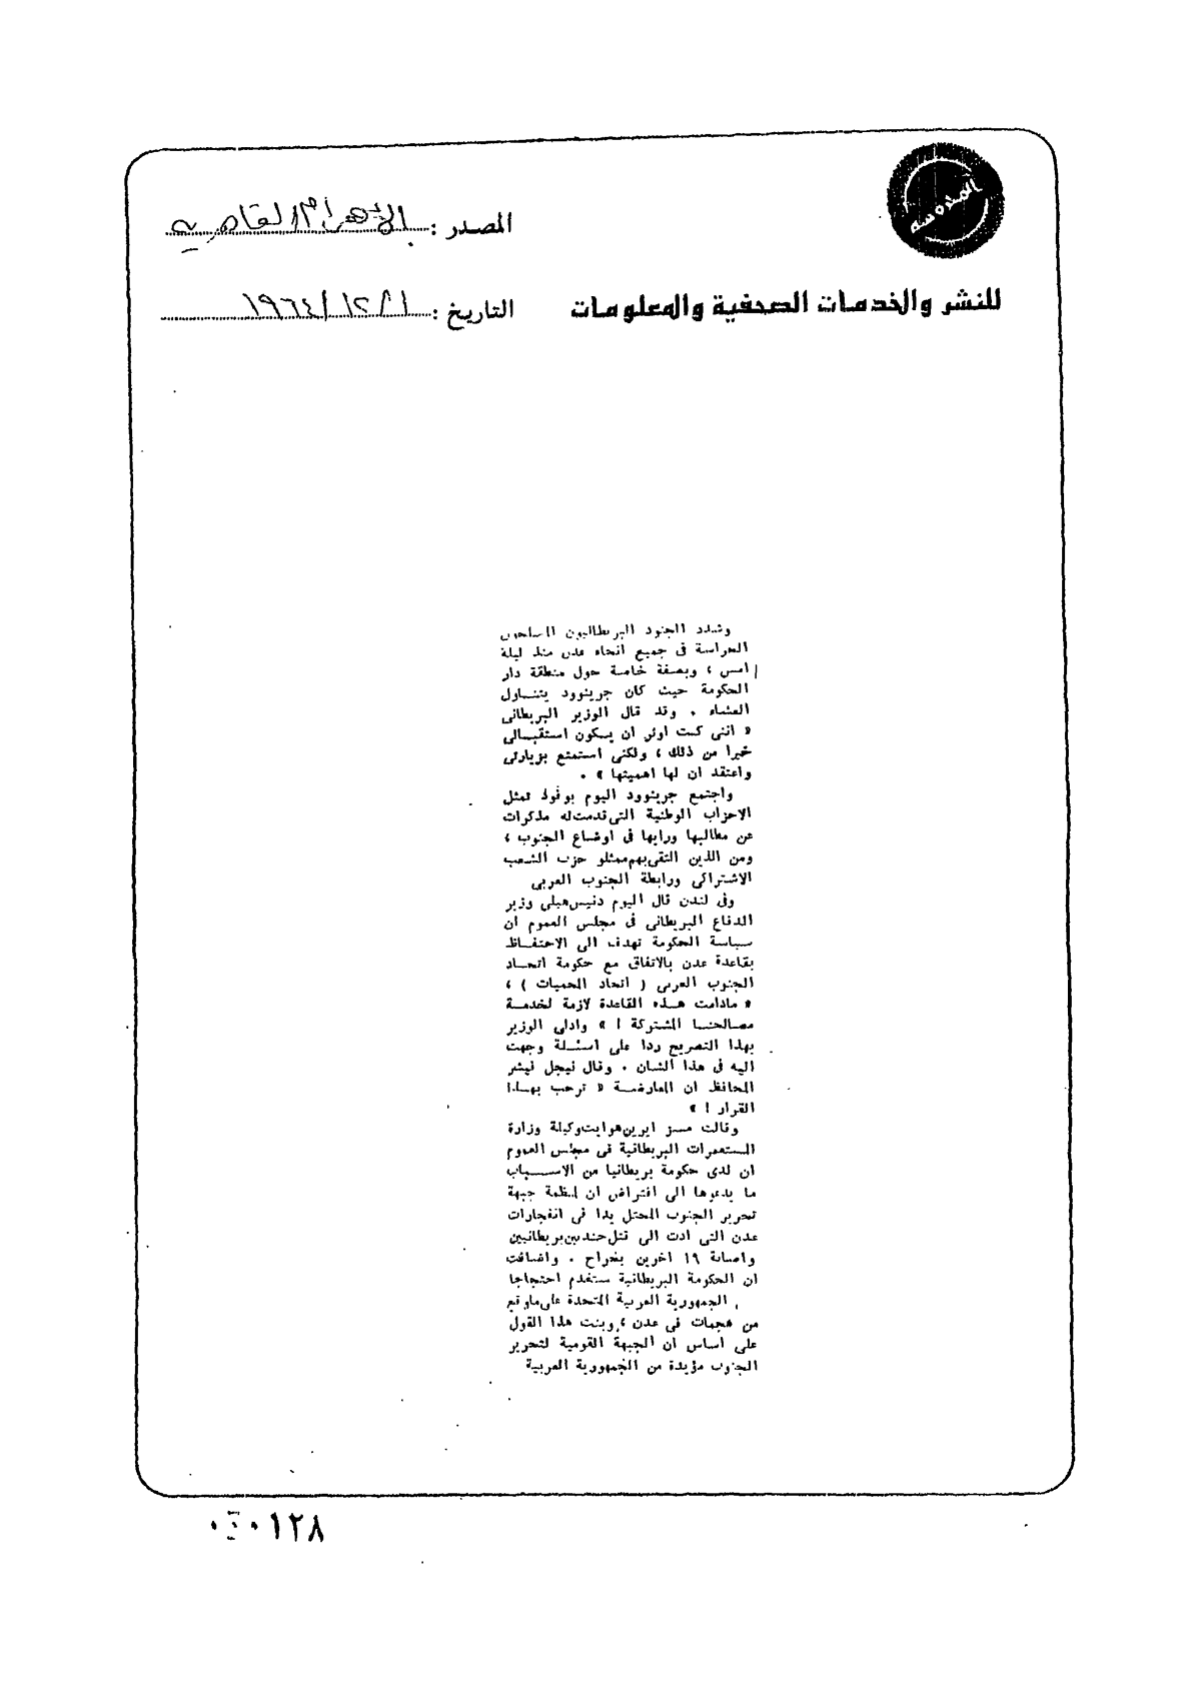 المصدر : الأهرام القاهرية
للنشر والخدمات الصحفية والمعلومات
التاريخ : ١٩٦٤/١٢/١
وشدد الجنود البريطانيون المسلحون
الحراسة فى جميع انحاء عدن منذ ليلة
امس ، وبصفة خاصة حول منطقة دار
الحكومة حيث كان جرينوود يتنـاول
العشاء . وقد قال الوزير البريطانى
« اننى كنت اوثر ان يـكون استقبـالى
خيرا من ذلك ، ولكنى استمتع بزيارتى
واعتقد ان لها اهميتها » .
واجتمع جرينوود اليوم بوفود تمثل
الاحزاب الوطنية التى قدمت له مذكرات
عن مطالبها ورايها فى اوضاع الجنوب ،
ومن الذين التقى بهم ممثلو حزب الشعب
الاشتراكى ورابطة الجنوب العربى
وفى لندن قال اليوم دنيس هيلى وزير
الدفاع البريطانى فى مجلس العموم ان
سياسة الحكومة تهدف الى الاحتفـاظ
بقاعدة عدن بالاتفاق مع حكومة اتحـاد
الجنوب العربى ( اتحاد المحميات ) ،
« مادامت هـذه القاعدة لازمة لخدمـة
مصالحنـا المشتركة ! » وادلى الوزير
بهذا التصريح ردا على اسئـلة وجهت
اليه فى هذا الشان . وقال نيجل فيشر
المحافظ ان المعارضـة « ترحب بهـذا
القرار ! »
وقالت مسز ايرين هوايت وكيلة وزارة
المستعمرات البريطانية فى مجلس العموم
ان لدى حكومة بريطانيا من الاسـباب
ما يدعوها الى افتراض ان لمنظمة جبهة
تحرير الجنوب المحتل يدا فى انفجارات
عدن التى ادت الى قتل جنديين بريطانيين
واصابة ١٩ اخرين بجراح . واضافت
ان الحكومة البريطانية ستقدم احتجاجا
الجمهورية العربية المتحدة على ماوقع
من هجمات فى عدن ، وبنت هذا القول
على اساس ان الجبهة القومية لتحرير
الجنوب مؤيدة من الجمهورية العربية